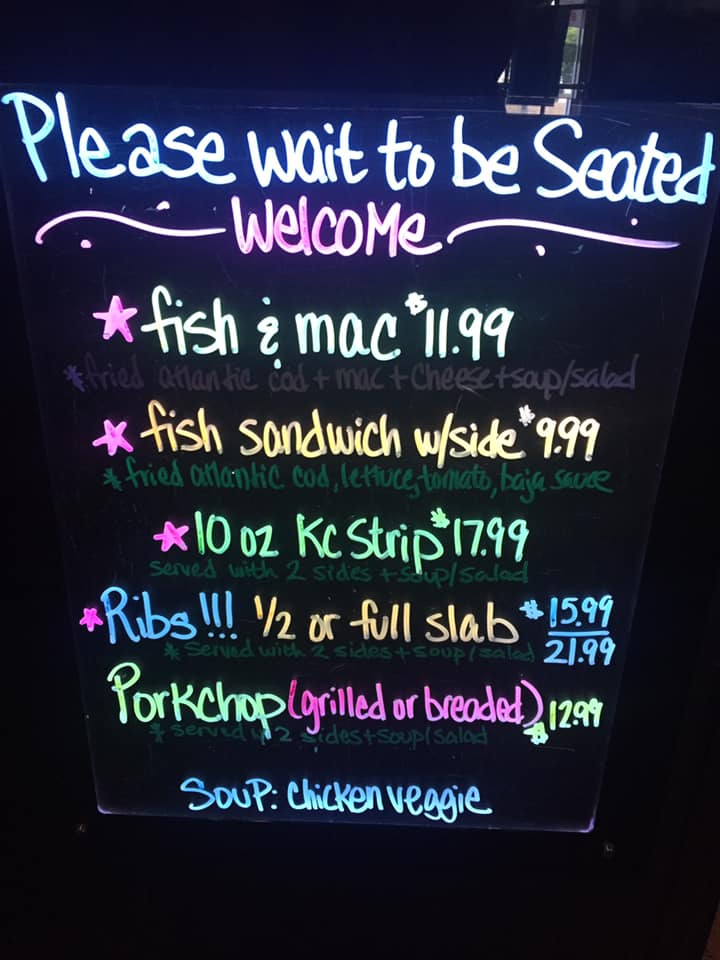 Please wait to be Seated
Welcome
fish & mac $11.99
*fried atlantic cod + mac + cheese + soup/salad
fish sandwich w/side $9.99
*fried atlantic cod, lettuce, tomato, baja sauce
10 oz KC Strip $17.99
served with 2 sides + soup/salad
Ribs!!! 1/2 or full slab $15.99
21.99
*served with 2 sides + soup/salad
Porkchop (grilled or breaded) $12.99
*served w/ 2 sides + soup/salad
Soup: chicken veggie